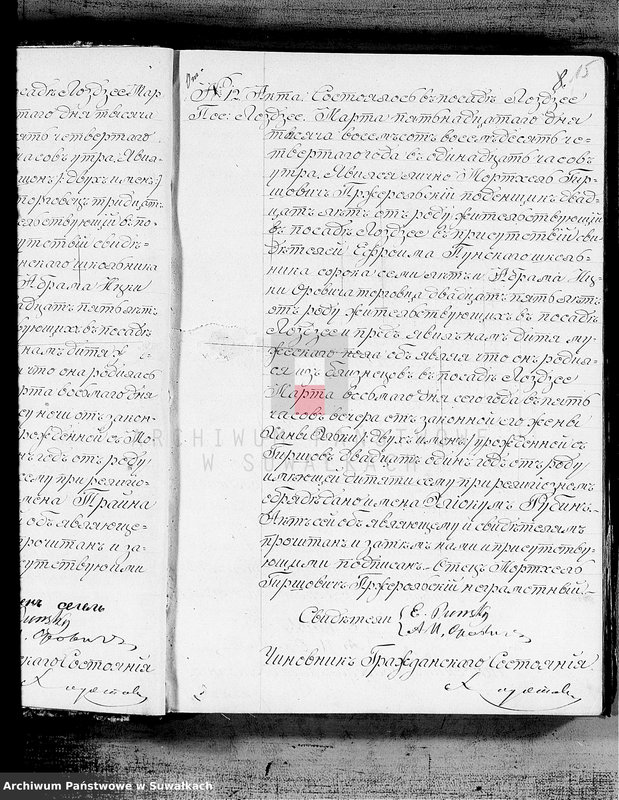 садъ Лоздзее Мар
таго дня тысяча
ять четвертаго
часовъ утра, Явил
двухъ именъ
торговецъ тридцать
тельствующій въ по
сутствіи свидѣ=
нскаго школьника
Абрама Ицки
адцать пять лѣтъ
вующихъ въ посадѣ
намъ дитя
что она родилась
рта восьмаго дня
ночи отъ закон=
рожденной съ
годъ отъ роду
сему при религіо=
мена Трайна
объявляюще=
прочтанъ и за=
сутствующими
Punsky
скаго Состоянія
15
№ 12 Акта. Состоялось въ посадѣ Лоздзее
Пос: Лоздзее. Марта пятьнадцатаго дня
тысяча восемъсотъ восемьдесятъ че=
твертаго года въ одинадцать часовъ
утра. Явился лично Мортхель Гир=
шовичъ поденщикъ двад=
цать лѣтъ отъ роду жительствующій
въ посадѣ Лоздзее въ присутствіи сви
дѣтелей Ефроима Пунскаго школь=
ника сорока семи лѣтъ и Абрама Иц=
ки Оровича торговца двадцать пять лѣтъ
отъ роду жительствующихъ въ посадѣ
Лоздзее и предъявилъ намъ дитя му=
жескаго пола объявляя что оно родило=
ся изъ близнецовъ въ посадѣ Лоздзее
Марта восьмаго дня сего года въ пять
часовъ вечера отъ законной его жены
Ханы двухъ именъ урожденной съ
Гиршовъ двадцать одинъ годъ отъ роду
имѣющей дитяти сему при религіозномъ
обрядѣ дано имена Рубинъ.
Актъ сей объявляющему и свидѣтелямъ
прочтанъ и затѣмъ нами и присутству=
ющими подписанъ. Отецъ Мортхель
Гиршовичъ неграмотный.
Свидѣтели E. Punsky
Чиновникъ Гражданскаго Состоянія.
ARCHIWUM PAŃSTWOWE
W SUWAŁKACH
Archiwum Państwowe w Suwałkach